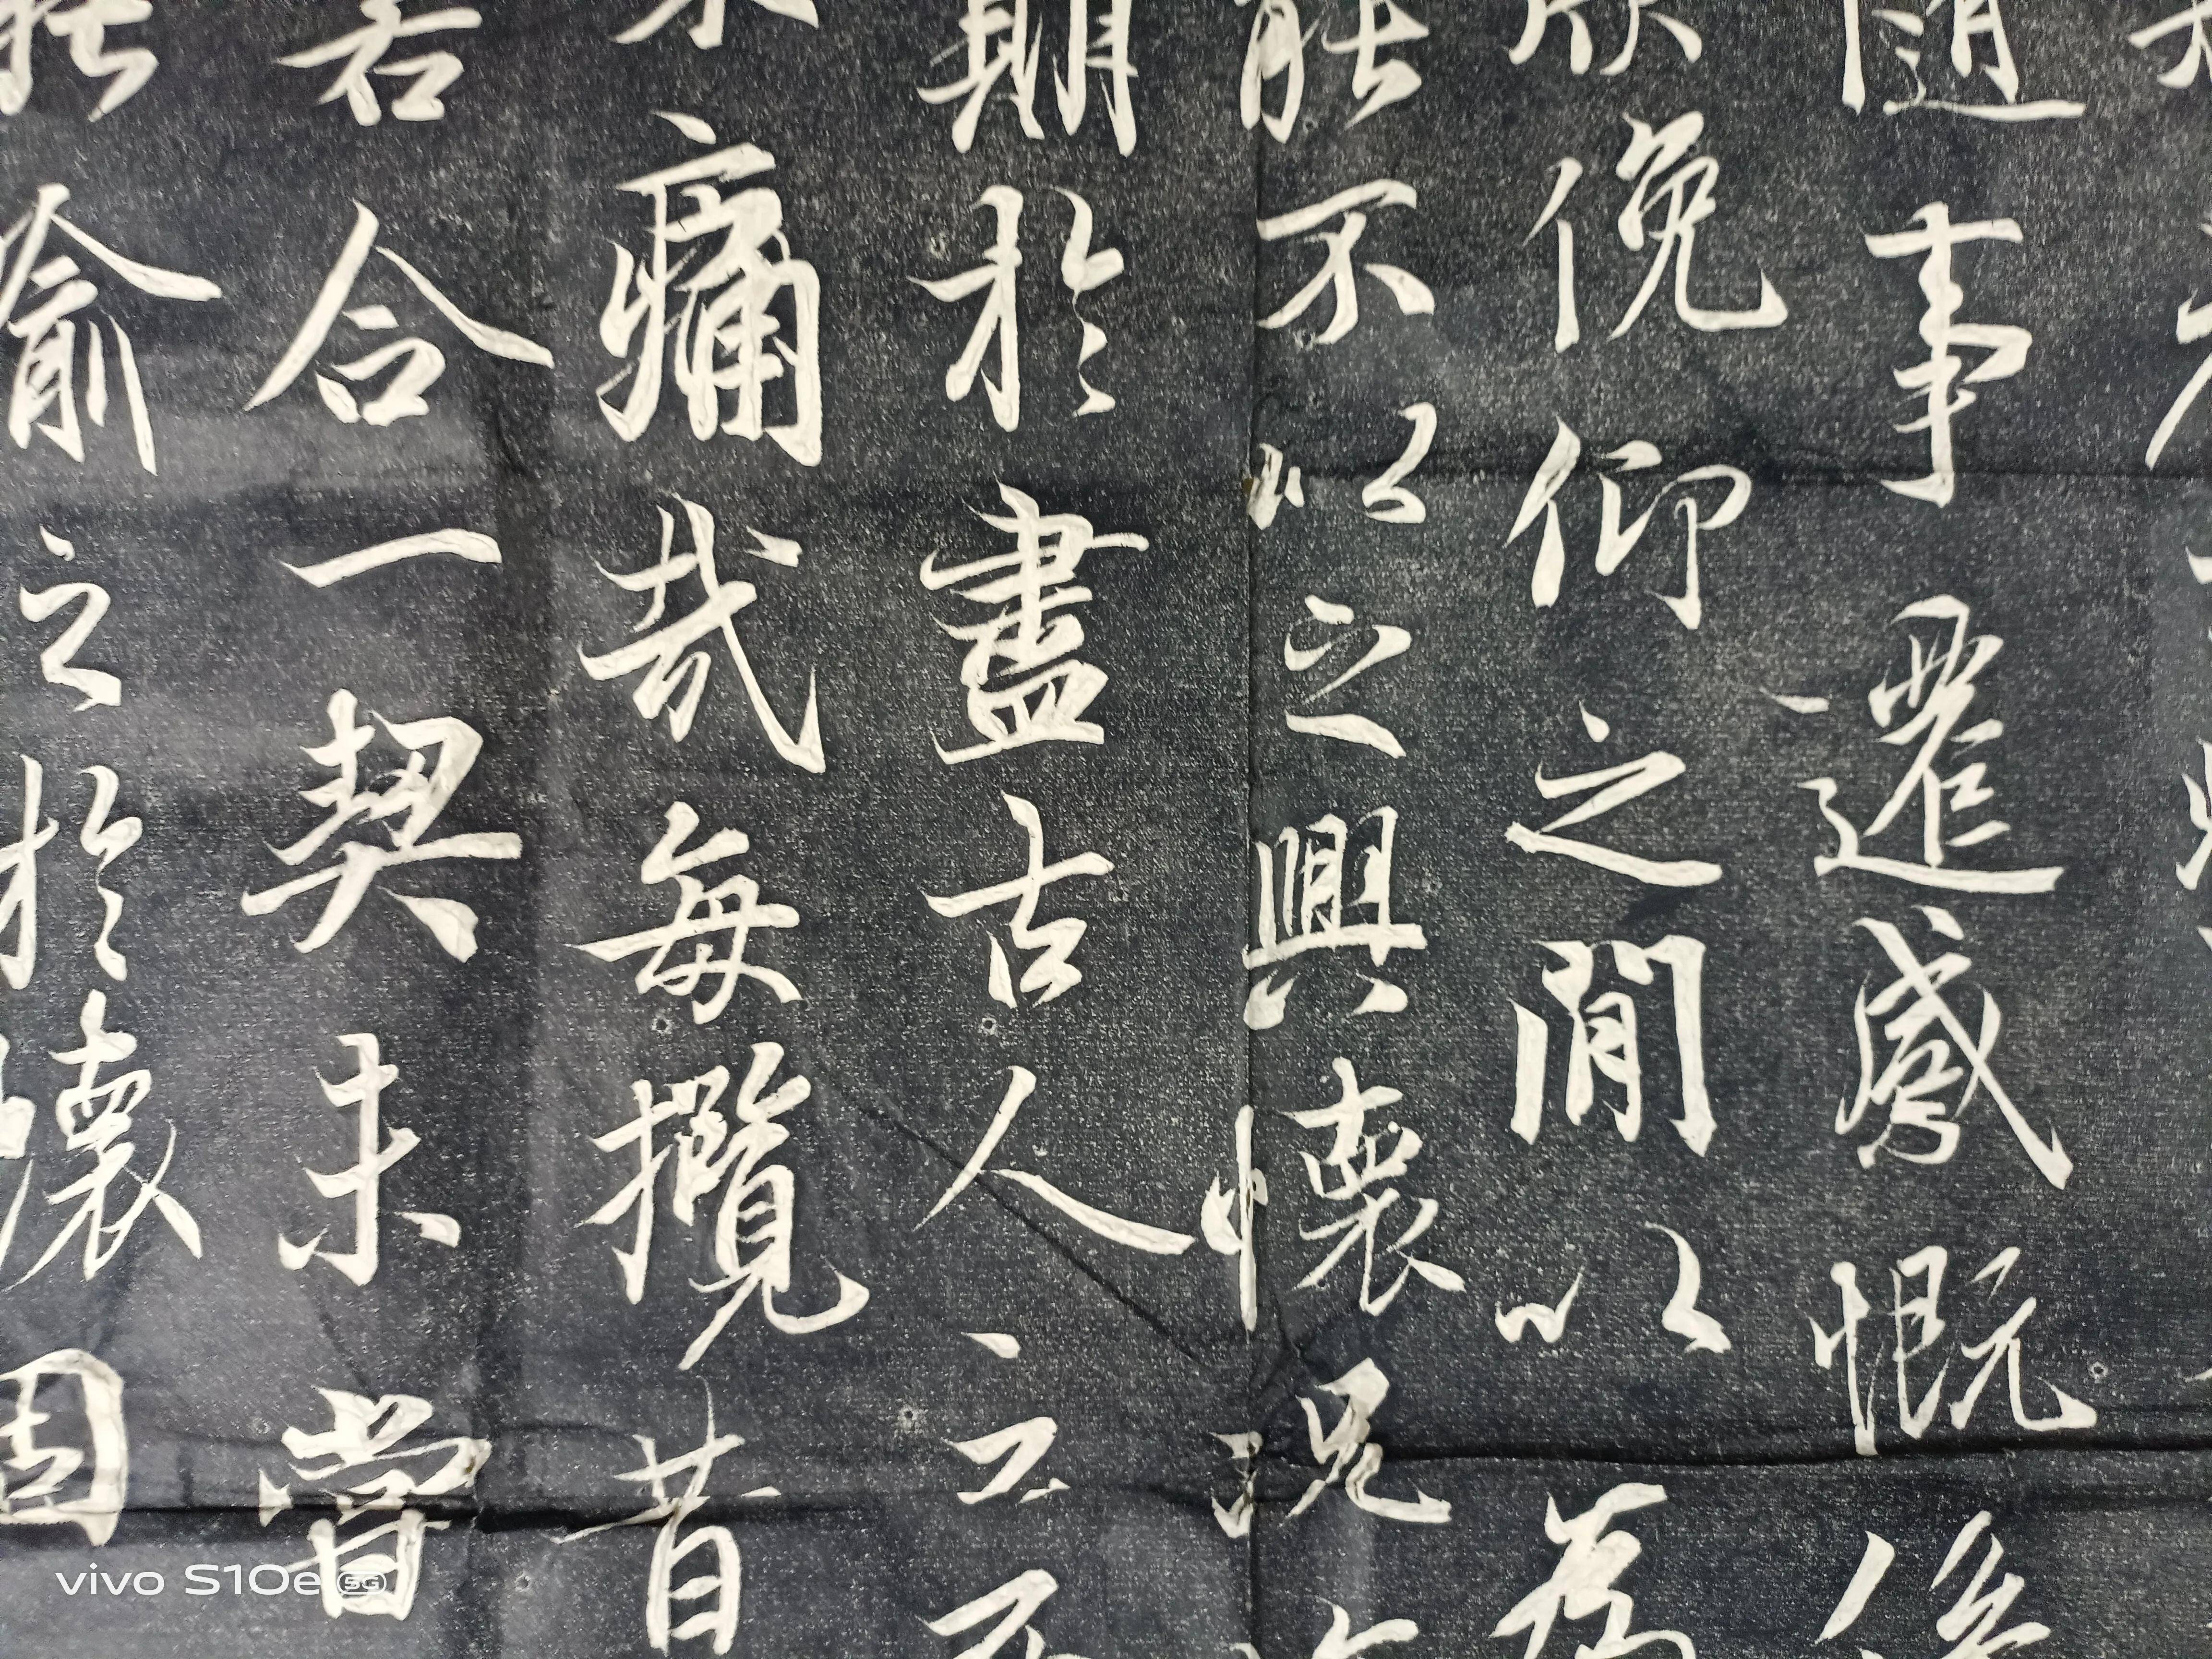 隨事遷感慨係
欣俛仰之閒以為
能不以之興懷況
期於盡古人云死
痛哉每攬昔
若合一契未嘗
喻之於懷固
vivo S10e 5G